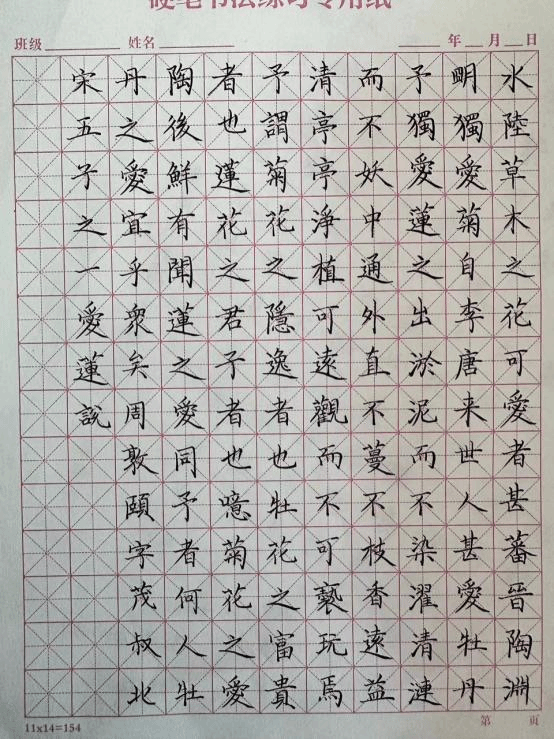 硬笔书法练习专用纸
班级 姓名 年 月 日
水陸草木之花可愛者甚蕃晉陶淵
明獨愛菊自李唐来世人甚愛牡丹
予獨愛蓮之出淤泥而不染濯清漣
而不妖中通外直不蔓不枝香遠益
清亭亭淨植可遠觀而不可褻玩焉
予謂菊花之隱逸者也牡花之富貴
者也蓮花之君子者也噫菊花之愛
陶後鮮有聞蓮之愛同予者何人牡
丹之愛宜乎衆矣周敦頤字茂叔北
宋五子之一愛蓮說
11x14=154 第 页